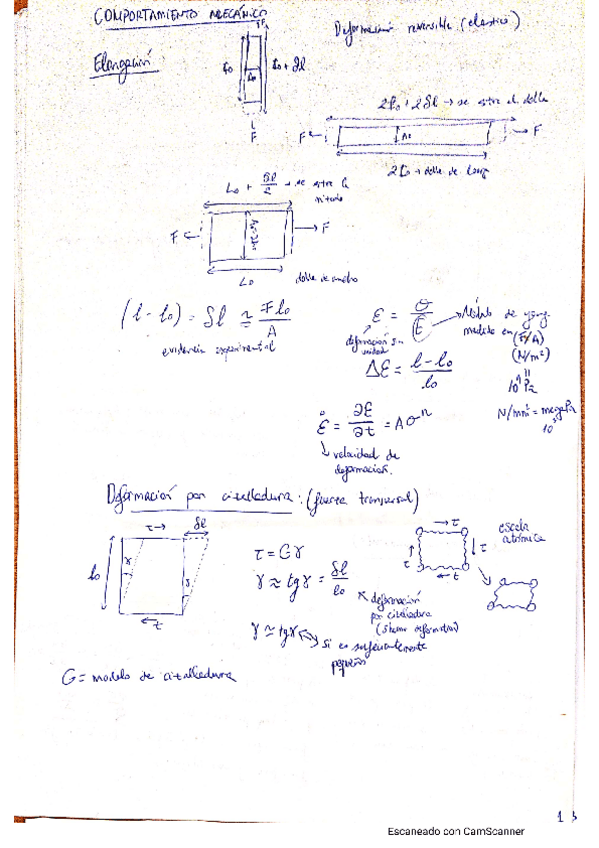 COMPORTAMIENTO MECÁNICO
Deformación reversible (elástico)
Elongación:
F
l₀
A₀
l₀ + δl
F
2l₀ + 2δl → se estira el doble
F
A₀
F
2l₀ → doble de long
L₀ + δl/2 → se estira la mitad
F
F
L₀
doble de ancho
(l - l₀) = δl ≃ Fl₀/A
evidencia experimental
ε = σ/E
Módulo de yong
medido en (F/A)
(N/m²)
deformación sin unidad
Δε = l - l₀/l₀
Pa
N/mm² = megaPa
ε̇ = ∂ε/∂t = Aσⁿ
velocidad de
deformación.
Deformación por cizalladura: (fuerza transversal)
τ →
δl
l₀
γ
γ
τ
τ = Gγ
γ ≈ tgγ = δl/l₀
deformación
por cizalladura
γ ≈ tgγ
si es suficientemente
pequeño
→ τ
τ
τ
← τ
escala
atómica
G = modelo de cizalladura
1
Escaneado con CamScanner